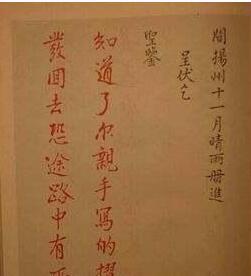 揚州十一月晴雨冊進
呈伏乞
聖鑒
知道了尔親手寫的摺
發回去恐途路中有